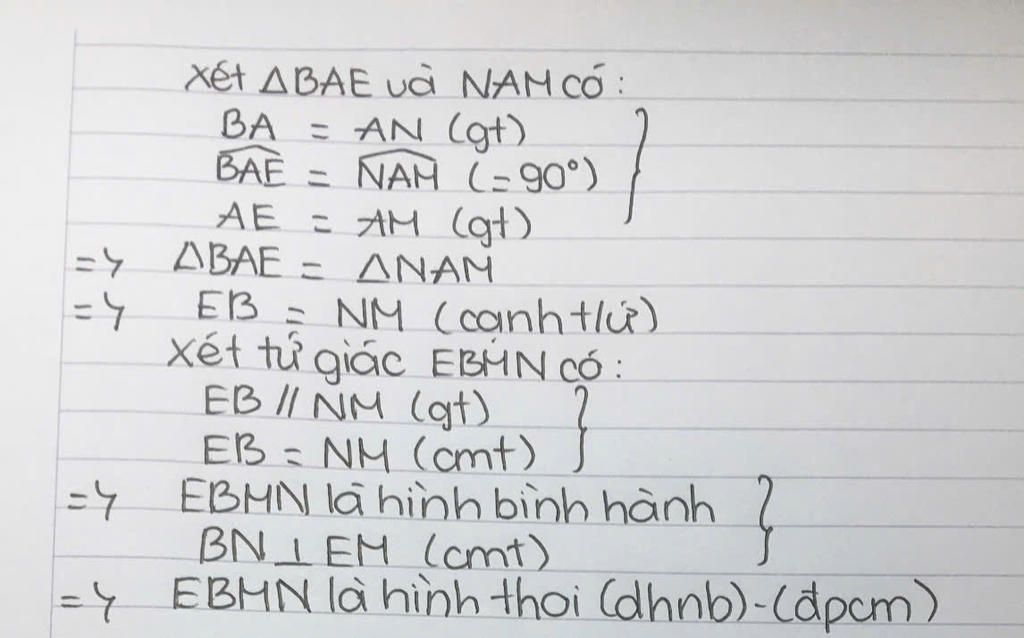 Xét ΔBAE và NAM có:
BA = AN (gt)
$\widehat{BAE}$ = $\widehat{NAM}$ (=90°)
AE = AM (gt)
=> ΔBAE = ΔNAM
=> EB = NM (cạnh t/ứ)
Xét tứ giác EBMN có:
EB // NM (gt)
EB = NM (cmt)
=> EBMN là hình bình hành
BN ⊥ EM (cmt)
=> EBMN là hình thoi (dhnb)-(đpcm)